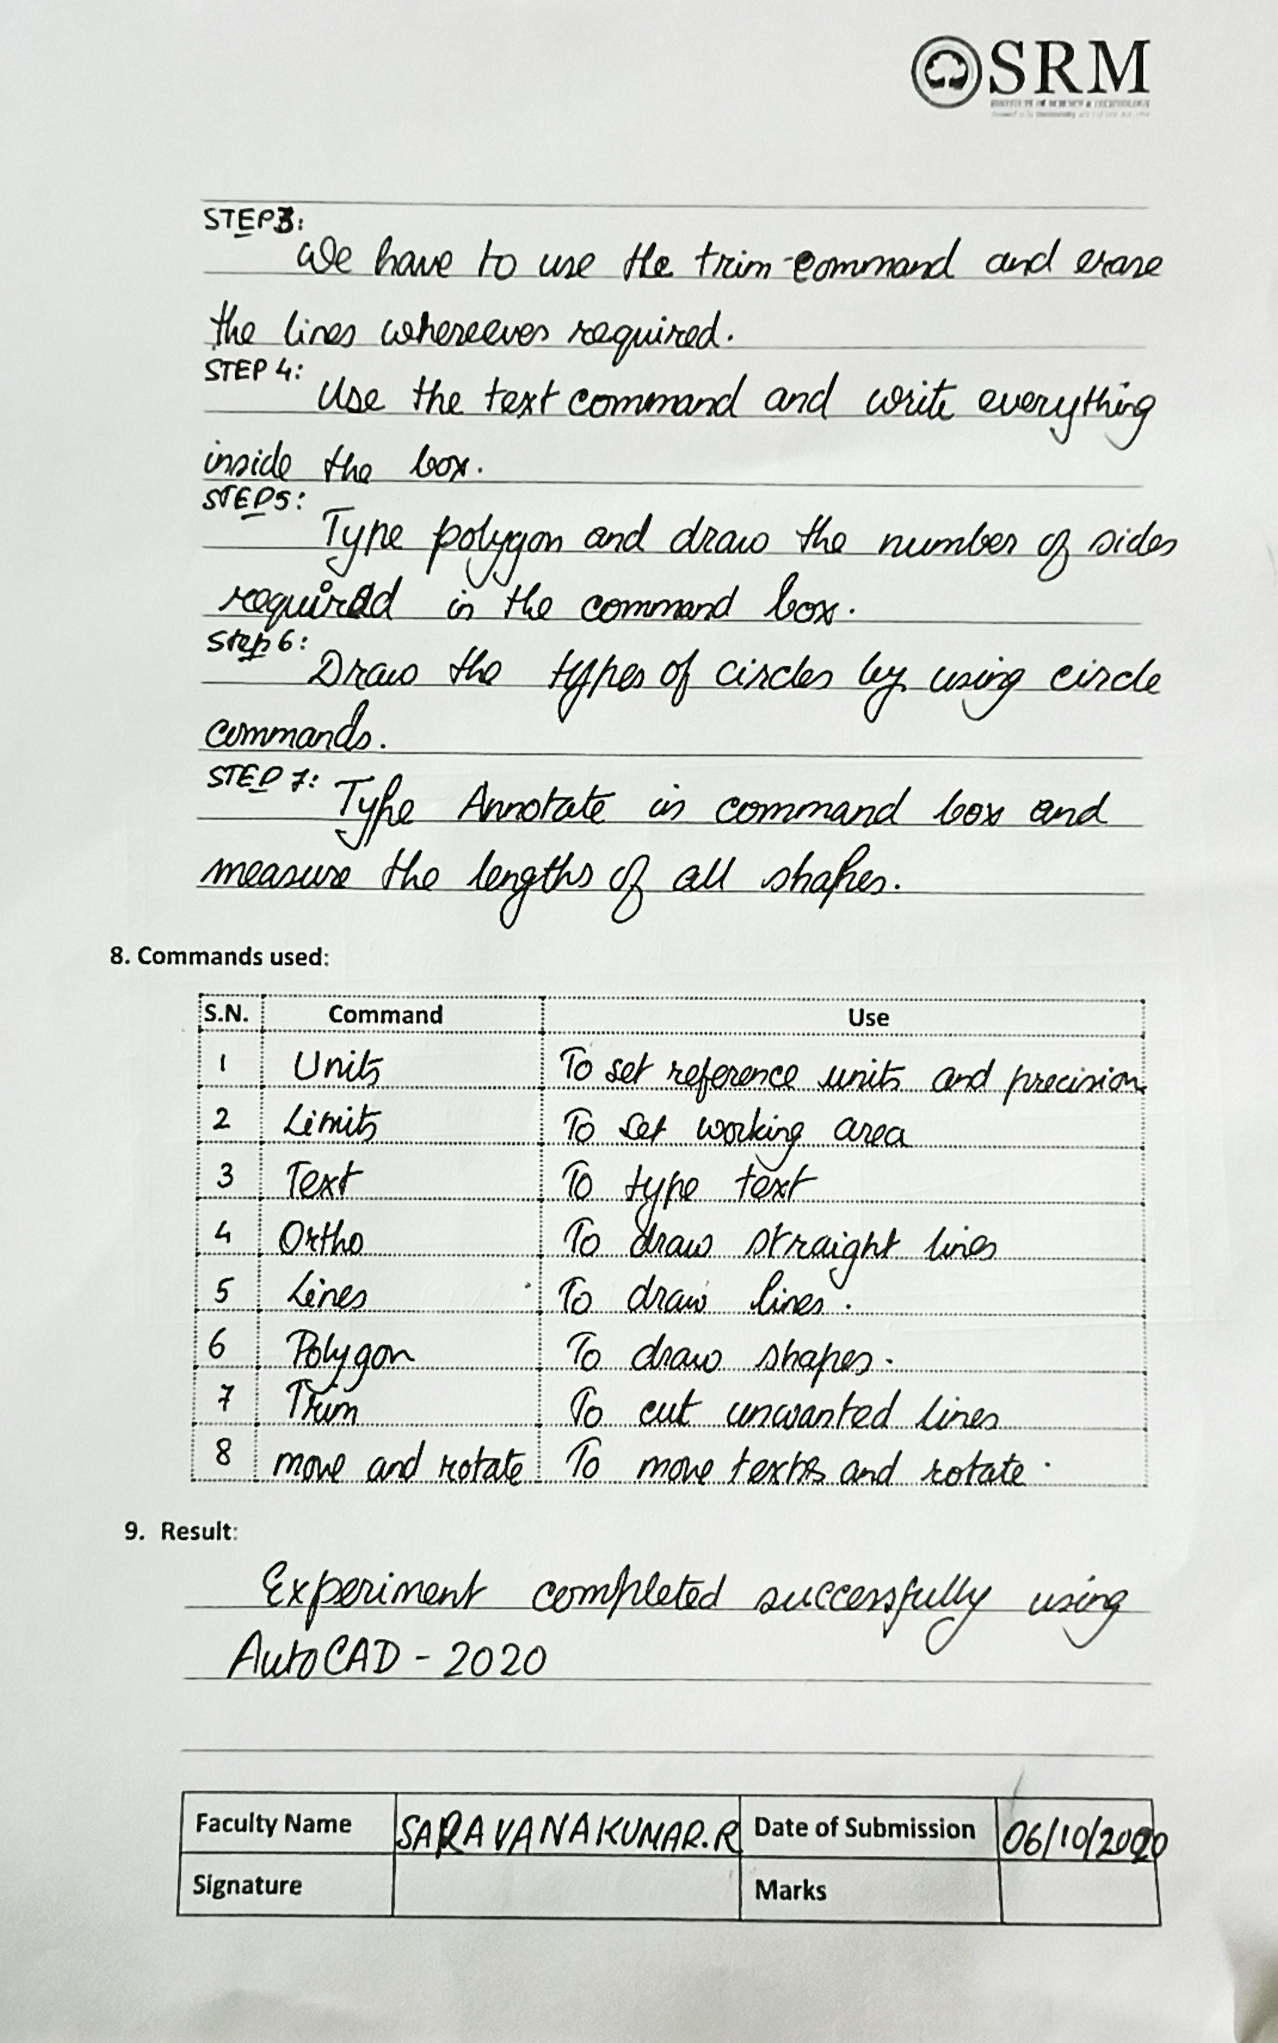 SRM
INSTITUTE OF SCIENCE & TECHNOLOGY
STEP3:
We have to use the trim command and erase
the lines whereever required.
STEP 4:
Use the text command and write everything
inside the box.
STEP5:
Type polygon and draw the number of sides
required in the command box.
Step 6:
Draw the types of circles by using circle
commands.
STEP 7:
Type Annotate in command box and
measure the lengths of all shapes.
8. Commands used:
S.N. Command Use
1 Units To set reference units and precision
2 Limits To set working area
3 Text To type text
4 Ortho To draw straight lines
5 Lines To draw lines.
6 Polygon To draw shapes.
7 Trim To cut unwanted lines
8 move and rotate To move texts and rotate.
9. Result:
Experiment completed successfully using
AutoCAD - 2020
Faculty Name SARAVANAKUMAR.R Date of Submission 06/10/2020
Signature Marks